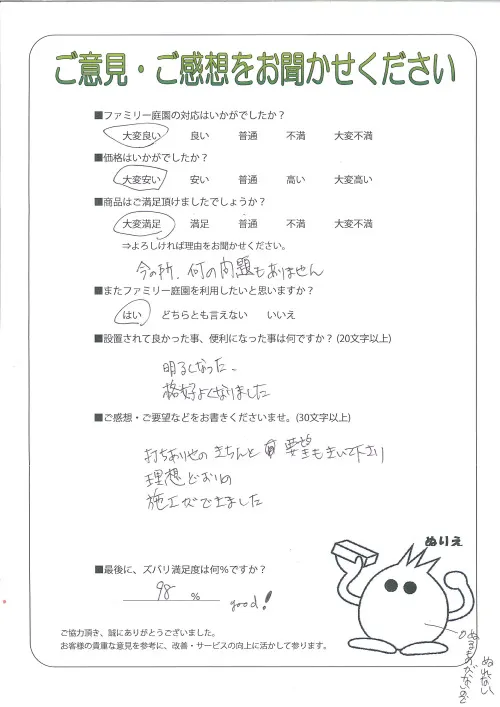 ご意見・ご感想をお聞かせください
■ファミリー庭園の対応はいかがでしたか？
大変良い 良い 普通 不満 大変不満
■価格はいかがでしたか？
大変安い 安い 普通 高い 大変高い
■商品はご満足頂けましたでしょうか？
大変満足 満足 普通 不満 大変不満
⇒よろしければ理由をお聞かせください。
今の所、何の問題もありません
■またファミリー庭園を利用したいと思いますか？
はい どちらとも言えない いいえ
■設置されて良かった事、便利になった事は何ですか？(20文字以上)
明るくなった、
格好よくなりました
■ご感想・ご要望などをお書きくださいませ。(30文字以上)
打ちあわせの きちんと 要望もきいて下さり
理想どおりの
施工ができました
ぬりえ
■最後に、ズバリ満足度は何％ですか？
98 % good!
ご協力頂き、誠にありがとうございました。
お客様の貴重な意見を参考に、改善・サービスの向上に活かして参ります。
ぬるものがないので
ぬれない